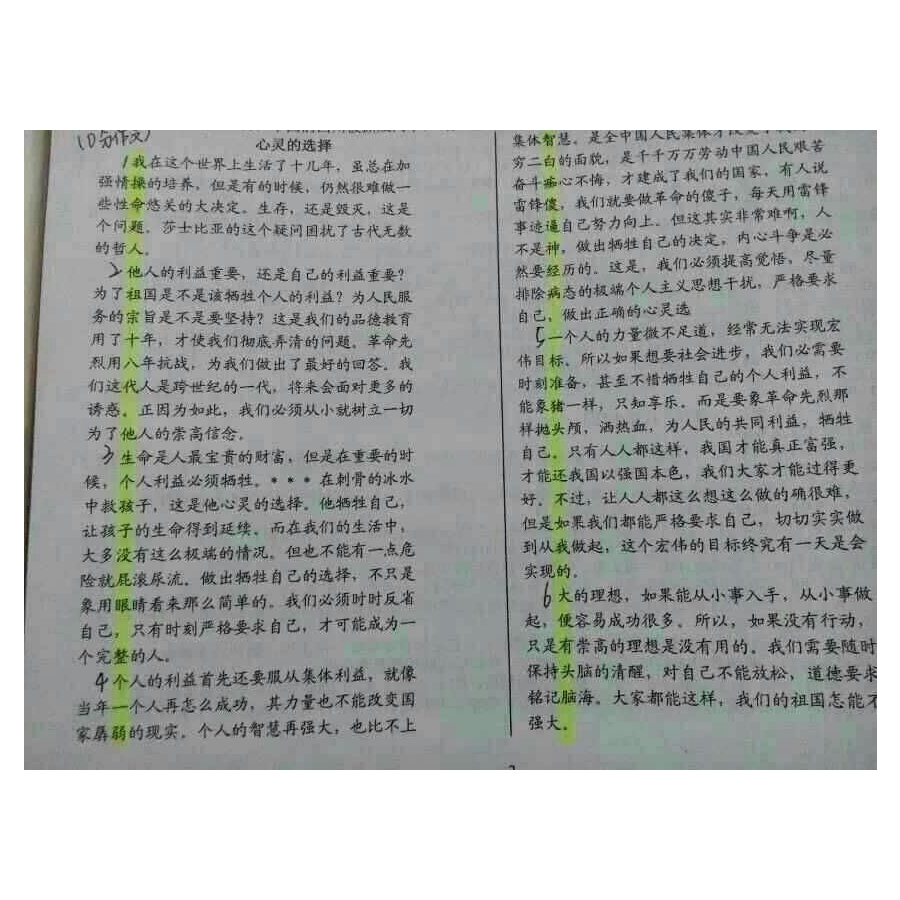 (0分作文)
心灵的选择
1我在这个世界上生活了十几年，虽总在加
强情操的培养，但是有的时候，仍然很难做一
些性命悠关的大决定。生存，还是毁灭，这是
个问题。莎士比亚的这个疑问困扰了古代无数
的哲人。
2他人的利益重要，还是自己的利益重要？
为了祖国是不是该牺牲个人的利益？为人民服
务的宗旨是不是要坚持？这是我们的品德教育
用了十年，才使我们彻底弄清的问题。革命先
烈用八年抗战，为我们做出了最好的回答。我
们这代人是跨世纪的一代，将来会面对更多的
诱惑。正因为如此，我们必须从小就树立一切
为了他人的崇高信念。
3生命是人最宝贵的财富，但是在重要的时
候，个人利益必须牺牲。***在刺骨的冰水
中救孩子，这是他心灵的选择。他牺牲自己，
让孩子的生命得到延续。而在我们的生活中，
大多没有这么极端的情况。但也不能有一点危
险就屁滚尿流。做出牺牲自己的选择，不只是
象用眼睛看来那么简单的。我们必须时时反省
自己，只有时刻严格要求自己，才可能成为一
个完整的人。
4个人的利益首先还要服从集体利益，就像
当年一个人再怎么成功，其力量也不能改变国
家孱弱的现实。个人的智慧再强大，也比不上
集体智慧。是全中国人民集体才改变了我
穷二白的面貌，是千千万万劳动中国人民艰苦
奋斗痴心不悔，才建成了我们的国家，有人说
雷锋傻，我们就要做革命的傻子，每天用雷锋
事迹逼自己努力向上。但这其实非常难啊，人
不是神，做出牺牲自己的决定，内心斗争是必
然要经历的。这是，我们必须提高觉悟，尽量
排除病态的极端个人主义思想干扰，严格要求
自己，做出正确的心灵选
5一个人的力量微不足道，经常无法实现宏
伟目标。所以如果想要社会进步，我们必需要
时刻准备，甚至不惜牺牲自己的个人利益，不
能象猪一样，只知享乐。而是要象革命先烈那
样抛头颅，洒热血，为人民的共同利益，牺牲
自己。只有人人都这样，我国才能真正富强，
才能还我国以强国本色，我们大家才能过得更
好。不过，让人人都这么想这么做的确很难，
但是如果我们都能严格要求自己，切切实实做
到从我做起，这个宏伟的目标终究有一天是会
实现的。
6大的理想，如果能从小事入手，从小事做
起，便容易成功很多。所以，如果没有行动，
只是有崇高的理想是没有用的。我们需要随时
保持头脑的清醒，对自己不能放松，道德要求
铭记脑海。大家都能这样，我们的祖国怎能不
强大。